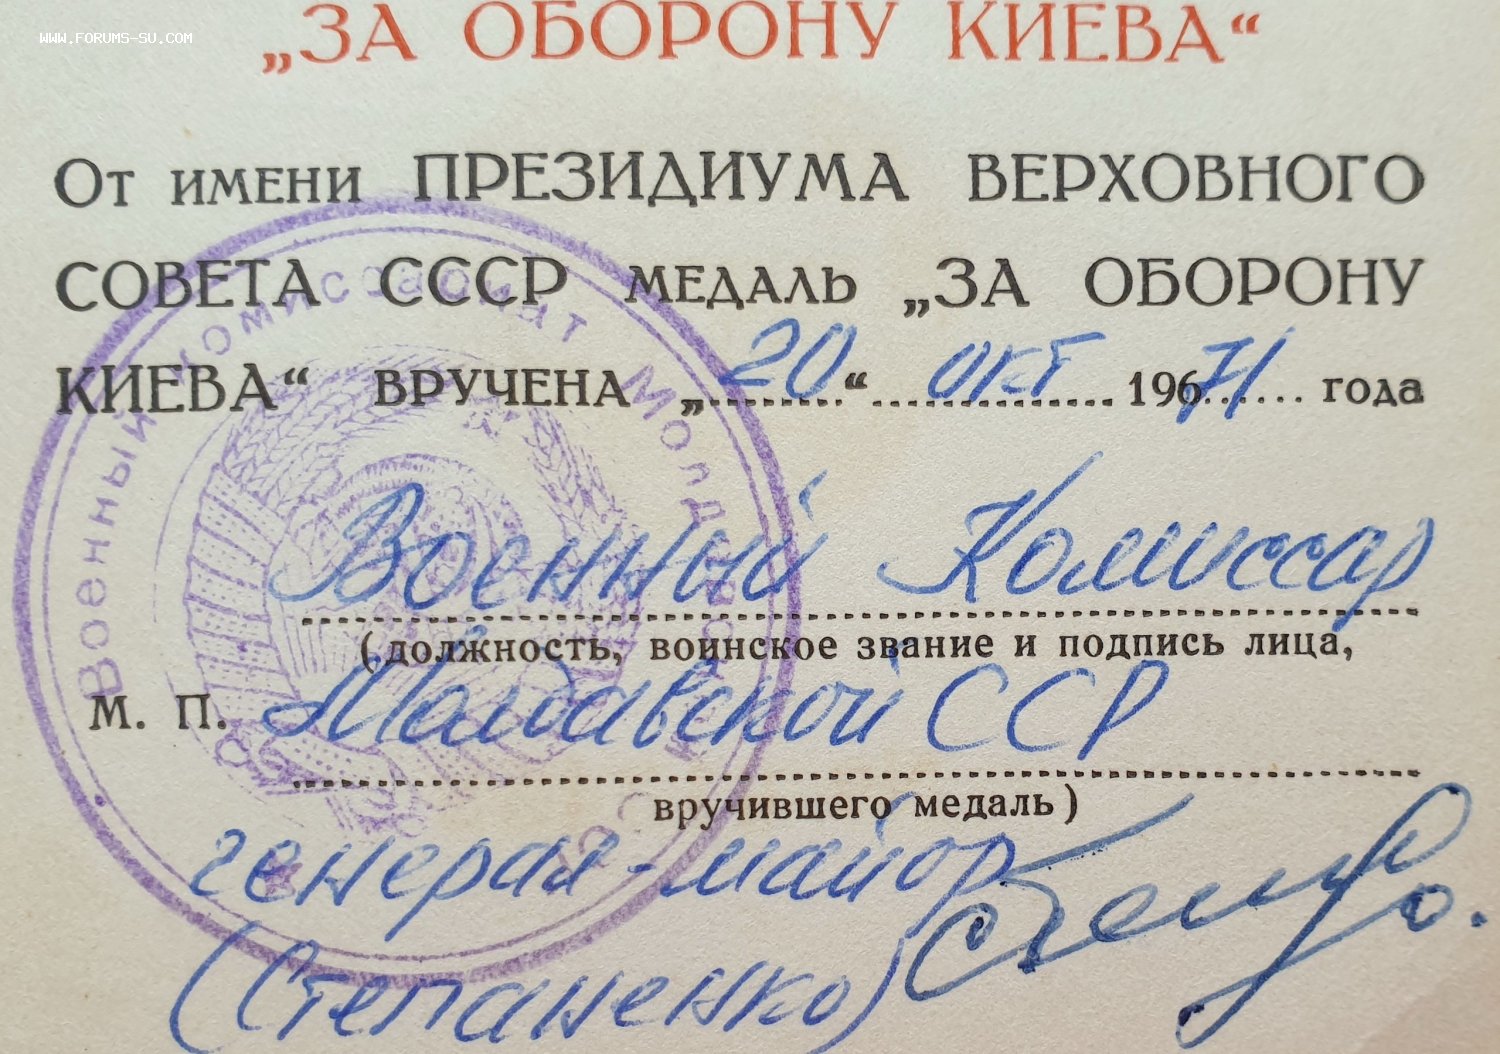 WWW.FORUMS-SU.COM
„ЗА ОБОРОНУ КИЕВА“
От имени ПРЕЗИДИУМА ВЕРХОВНОГО
СОВЕТА СССР МЕДАЛЬ „ЗА ОБОРОНУ
КИЕВА“ ВРУЧЕНА „20“ окт 19671 года
Военный Комиссар
(должность, воинское звание и подпись лица,
М. П. Молдавской ССР
вручившего медаль)
генерал-майор
(Степаненко)
Военный комиссариат Молдавской ССР